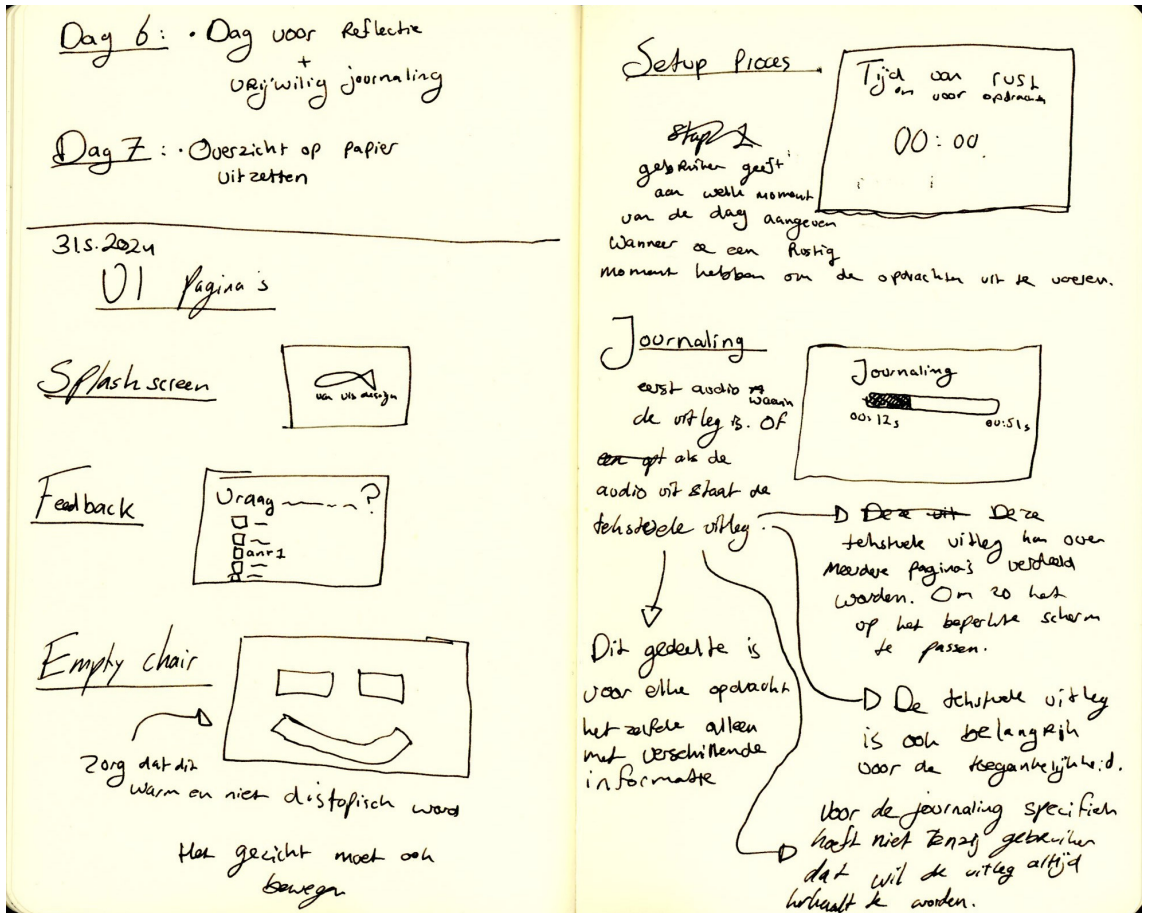 Dag 6: • Dag voor Reflectie
+
vrijwilig journaling
Dag 7: • Overzicht op papier
uitzetten
31.5.2024
UI Pagina's
Splash screen
van vis design
Feedback
Vraag ?
antw 1
Empty chair
Zorg dat dit
warm en niet distopisch word
Het gezicht moet ook
bewegen
Setup Proces
Tijd van rust
om voor opdracht
00:00
Stap 1
gebruiker geeft
aan welk moment
van de dag aangeven
wanneer ze een Rustig
moment hebben om de opdrachten uit te voeren.
Journaling
eerst audio waarin
de uitleg is. Of
als de
audio uit staat de
tekstuele uitleg.
Journaling
00:12s
00:51s
Deze uit Deze
tekstuele uitleg kan over
Meerdere pagina's verdeeld
worden. Om zo het
op het beperkte scherm
te passen.
Dit gedeelte is
voor elke opdracht
het zelfde alleen
met verschillende
informatie
De tekstuele uitleg
is ook belangrijk
voor de toegankelijkheid.
Voor de journaling specifiek
hoeft niet Tenzij gebruiker
dat wil de uitleg altijd
herhaalt te worden.